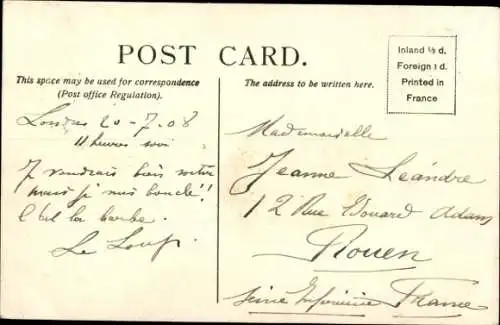 POST CARD.
Inland ½ d.
Foreign 1 d.
Printed in
France
This space may be used for correspondence
(Post office Regulation).
The address to be written here.
Londres 20-7-08
11 heures soir
J voudrais bien
mais je suis bouclé!!
C'est la barbe.
Le Loup.
Mademoiselle
Jeanne Leándre
12 Rue Edouard Adam
Rouen
Seine Inférieure France